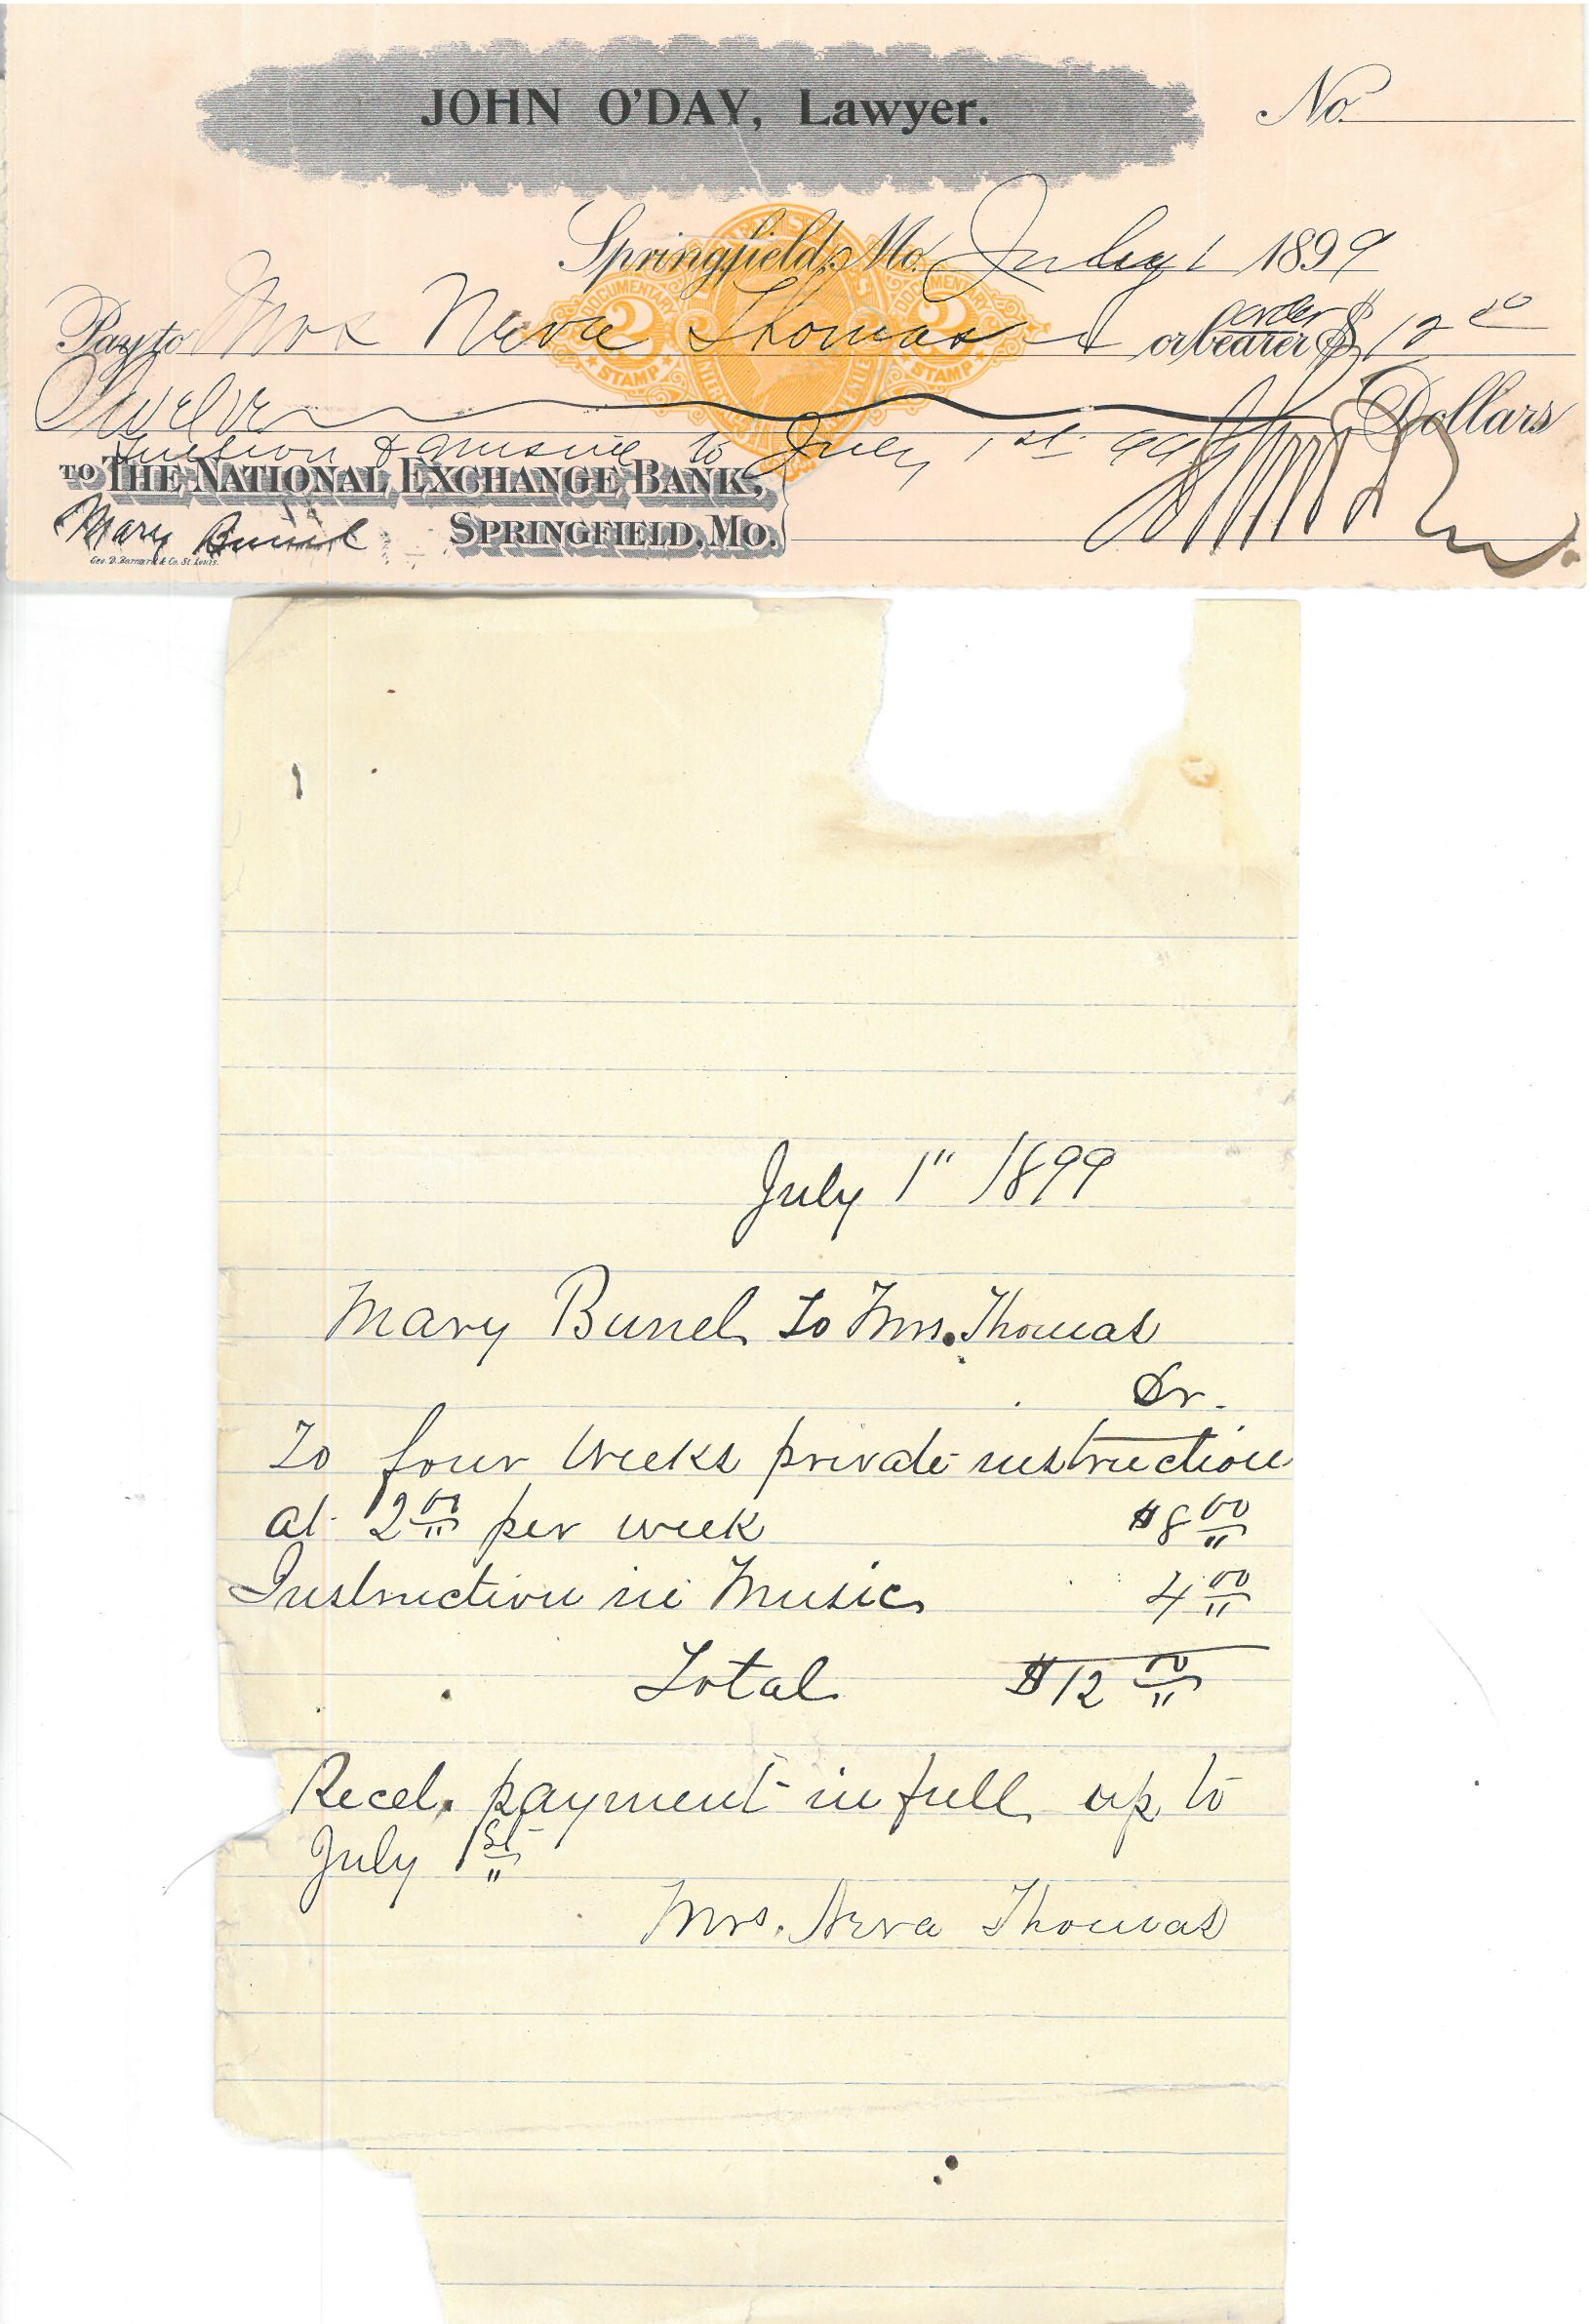 JOHN O'DAY, Lawyer.
No.
Springfield, Mo. July 1 1899
Pay to Mrs Neva Thomas or bearer order $ 12 00
Twelve Dollars
Tuition & music to July 1st 99
TO THE NATIONAL EXCHANGE BANK,
SPRINGFIELD, MO.
Mary Bunel
Geo. D. Barnard & Co. St. Louis.
DOCUMENTARY 2 STAMP
DOCUMENTARY 2 STAMP
July 1" 1899
Mary Bunel To Mrs. Thomas
Dr.
To four weeks private instruction
at 2 00 per week $8 00
Instruction in Music 4 00
Total $12 00
Recd. payment in full up to
July 1st
Mrs. Neva Thomas